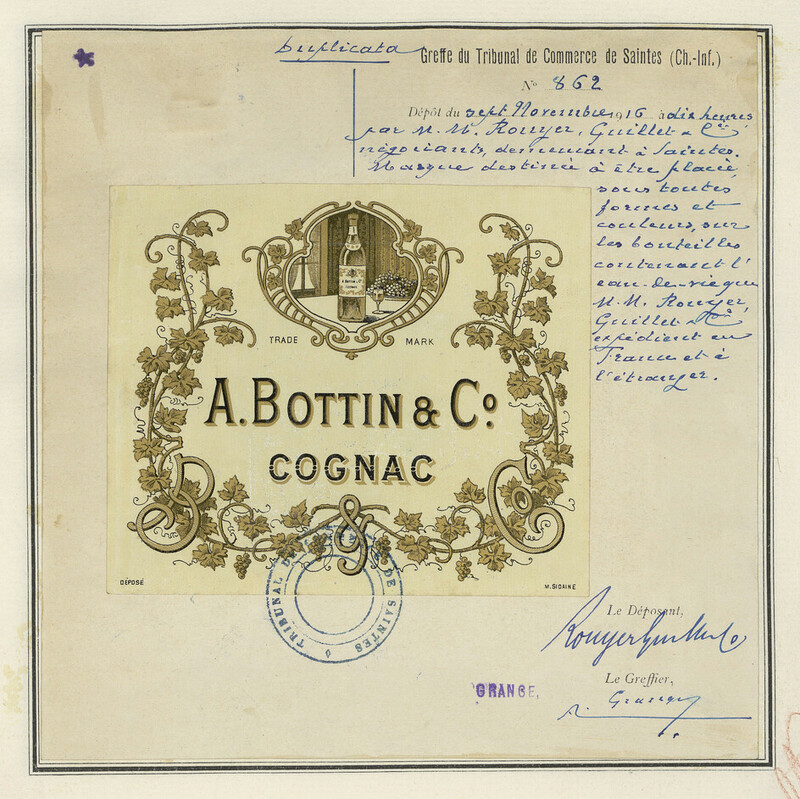 Duplicata
Greffe du Tribunal de Commerce de Saintes (Ch.-Inf.)
No 862
Dépôt du sept Novembre 1916 à dix heures
par M.M. Rouyer, Guillet & Cie
négociants, demeurant à Saintes.
Marque destinée à être placée,
sous toutes
formes et
couleurs, sur
les bouteilles
contenant l'
eau-de-vie que
M.M. Rouyer,
Guillet & Cie
expédient en
France et à
l'étranger.
A. BOTTIN & Co
COGNAC
TRADE MARK
A. BOTTIN & Co
COGNAC
B & Co
DÉPOSÉ
M. SICAINE
TRIBUNAL DE COMMERCE DE SAINTES
Le Déposant,
Rouyer Guillet & Co
Le Greffier,
GRANGE,
Grange